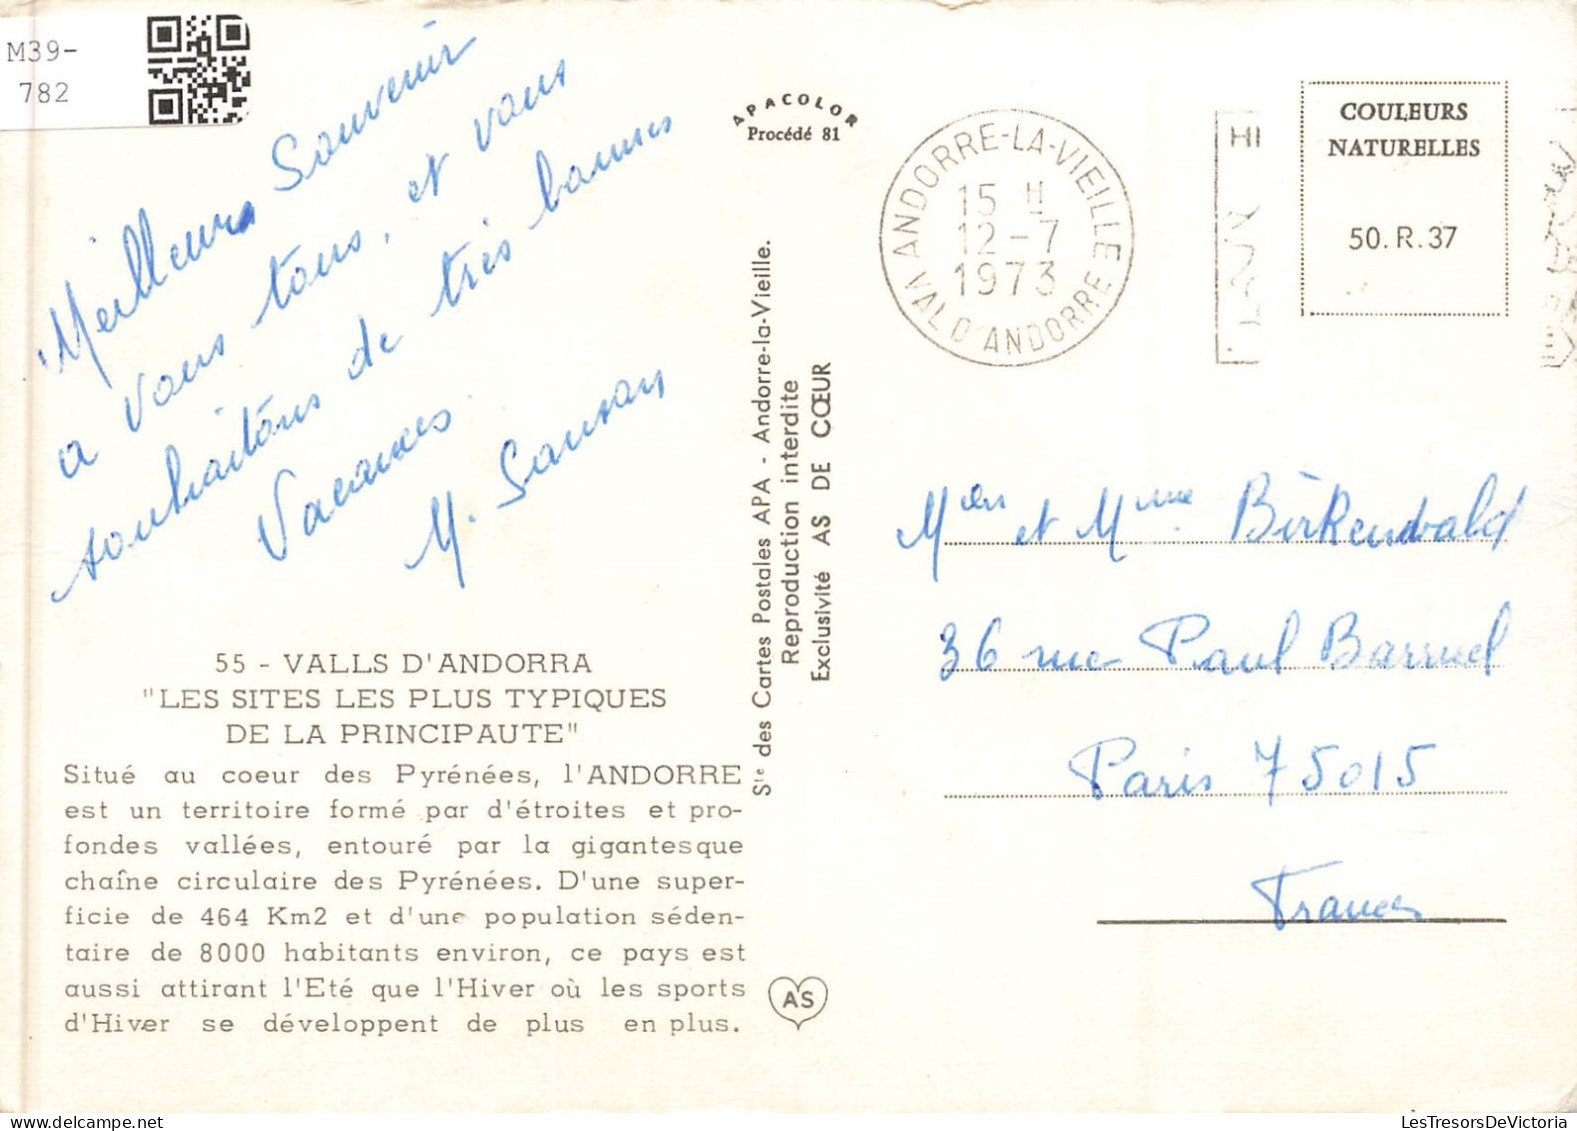 M39-
782
Meilleurs Souvenir
a vous tous, et vous
souhaitons de très bonnes
Vacances
M. Sansan
55 - VALLS D'ANDORRA
"LES SITES LES PLUS TYPIQUES
DE LA PRINCIPAUTE"
Situé au coeur des Pyrénées, l'ANDORRE
est un territoire formé par d'étroites et pro-
fondes vallées, entouré par la gigantesque
chaîne circulaire des Pyrénées. D'une super-
ficie de 464 Km2 et d'une population séden-
taire de 8000 habitants environ, ce pays est
aussi attirant l'Eté que l'Hiver où les sports
d'Hiver se développent de plus en plus.
APACOLOR
Procédé 81
Sté des Cartes Postales APA - Andorre-la-Vieille.
Reproduction interdite
Exclusivité AS DE CŒUR
AS
ANDORRE-LA-VIEILLE
15 H
12-7
1973
VAL D'ANDORRE
HI
COULEURS
NATURELLES
50. R. 37
et Mme Birkenwald
36 rue Paul Barruel
Paris 75015
France
LesTresorsDeVictoria